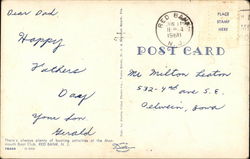 Dear Dad,
Happy
Fathers
Day
Your Son
Gerald
There's always plenty of boating activities at the Monmouth Boat Club, RED BANK, N. J.
RED BANK
N.J.
1960
PLACE
STAMP
HERE
POST CARD
Mr Milton Leaton
532-4th ave S.E.
Oelwein, Iowa